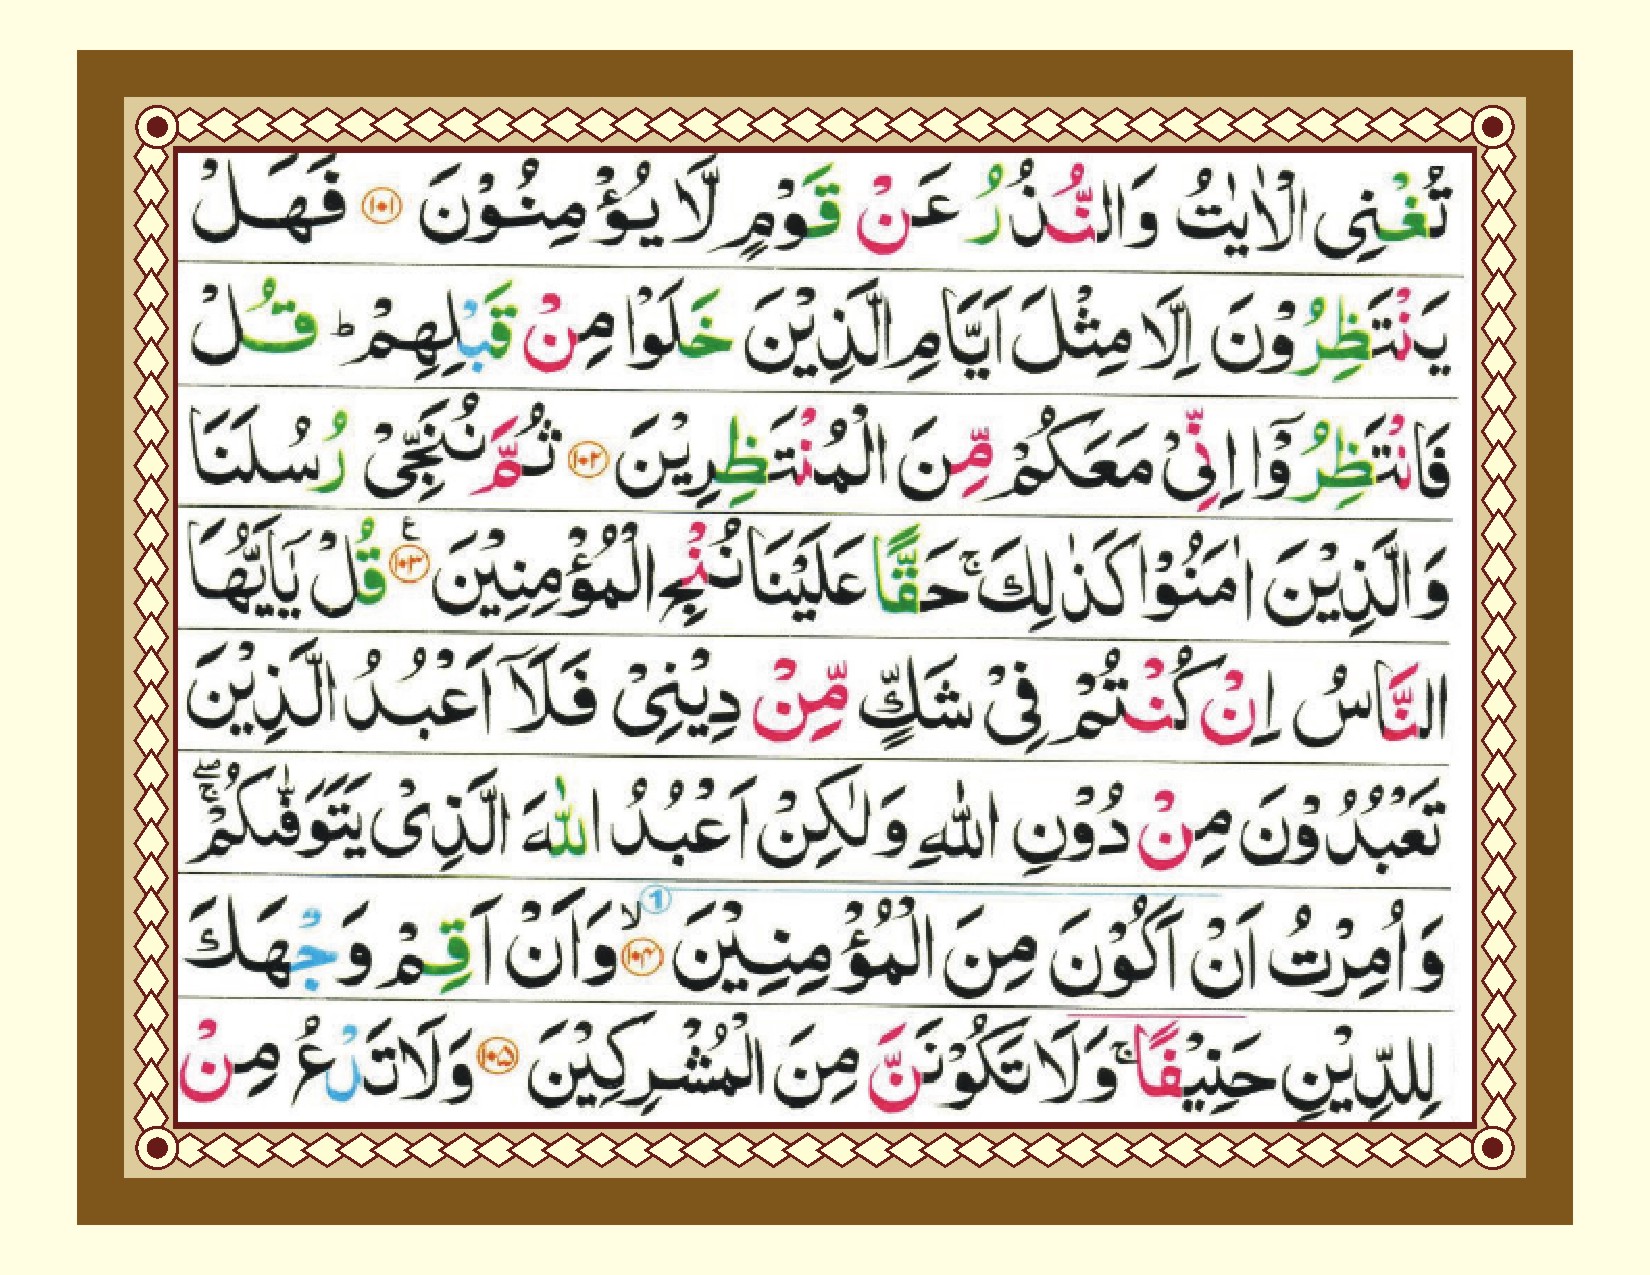 تُغْنِی الْاٰیٰتُ وَالنُّذُرُ عَنْ قَوْمٍ لَّا یُؤْمِنُوْنَ ﴿۱۰۱﴾ فَهَلْ
یَنْتَظِرُوْنَ اِلَّا مِثْلَ اَیَّامِ الَّذِیْنَ خَلَوْا مِنْ قَبْلِهِمْ ؕ قُلْ
فَانْتَظِرُوْۤا اِنِّیْ مَعَكُمْ مِّنَ الْمُنْتَظِرِیْنَ ﴿۱۰۲﴾ ثُمَّ نُنَجِّیْ رُسُلَنَا
وَالَّذِیْنَ اٰمَنُوْا كَذٰلِكَ ۚ حَقًّا عَلَیْنَا نُنْجِ الْمُؤْمِنِیْنَ ﴿۱۰۳﴾ ع قُلْ یٰۤاَیُّهَا
النَّاسُ اِنْ كُنْتُمْ فِیْ شَكٍّ مِّنْ دِیْنِیْ فَلَاۤ اَعْبُدُ الَّذِیْنَ
تَعْبُدُوْنَ مِنْ دُوْنِ اللّٰهِ وَلٰكِنْ اَعْبُدُ اللّٰهَ الَّذِیْ یَتَوَفّٰىكُمْ ۖۚ
وَاُمِرْتُ اَنْ اَكُوْنَ مِنَ الْمُؤْمِنِیْنَ ﴿۱۰۴﴾ ۙ 1 وَاَنْ اَقِمْ وَجْهَكَ
لِلدِّیْنِ حَنِیْفًا ۚ وَلَا تَكُوْنَنَّ مِنَ الْمُشْرِكِیْنَ ﴿۱۰۵﴾ وَلَا تَدْعُ مِنْ